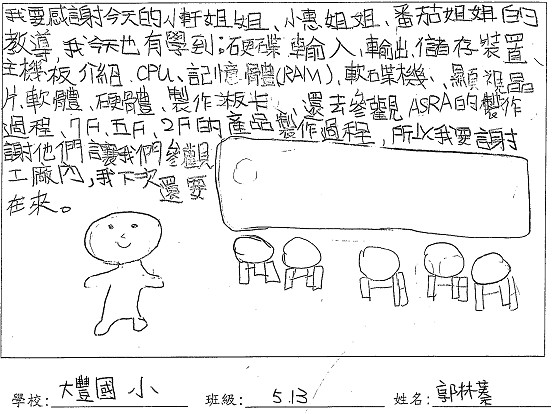 我要感謝今天的小軒姐姐、小惠姐姐、番茄姐姐的
教導,我今天也有學到:硬碟、輸入、輸出、儲存裝置、
主機板介紹、CPU、記憶體(RAM)、軟碟機、顯視晶
片、軟體、硬體、製作板卡、還去參觀ASRA的製作
過程、7F、五F、2F的產品製作過程,所以我要謝
謝他們讓我們參觀
工廠內,我下次還要
在來。
學校:大豐國小 班級:5.13 姓名:郭林蓁